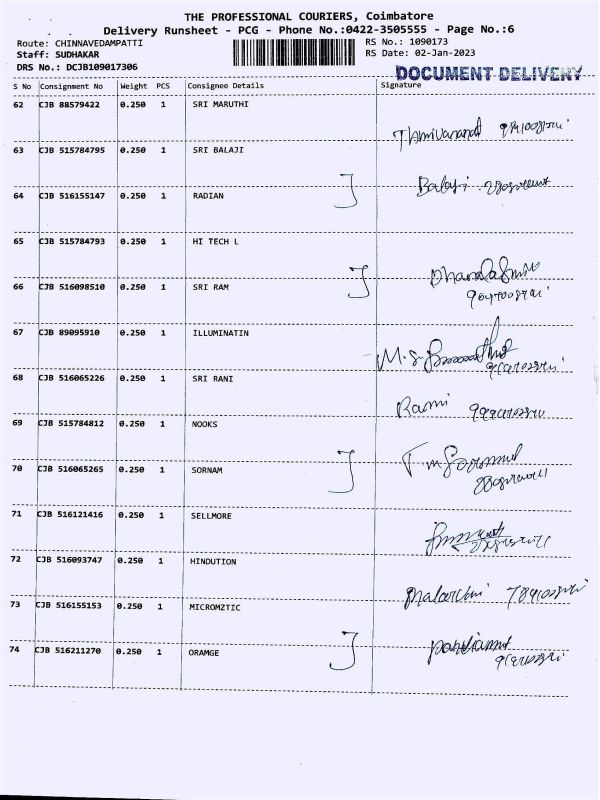 THE PROFESSIONAL COURIERS, Coimbatore
Delivery Runsheet - PCG - Phone No.:0422-3505555 - Page No.:6
Route: CHINNAVEDAMPATTI RS No.: 1090173
Staff: SUDHAKAR RS Date: 02-Jan-2023
DRS No.: DCJB109017306
DOCUMENT DELIVERY
S No Consignment No Weight PCS Consignee Details Signature
62 CJB 88579422 0.250 1 SRI MARUTHI
63 CJB 515784795 0.250 1 SRI BALAJI
Balaji
64 CJB 516155147 0.250 1 RADIAN
65 CJB 515784793 0.250 1 HI TECH L
66 CJB 516098510 0.250 1 SRI RAM
67 CJB 89095910 0.250 1 ILLUMINATIN
68 CJB 516065226 0.250 1 SRI RANI
Rami
69 CJB 515784812 0.250 1 NOOKS
70 CJB 516065265 0.250 1 SORNAM
71 CJB 516121416 0.250 1 SELLMORE
72 CJB 516093747 0.250 1 HINDUTION
73 CJB 516155153 0.250 1 MICROMZTIC
74 CJB 516211270 0.250 1 ORAMGE